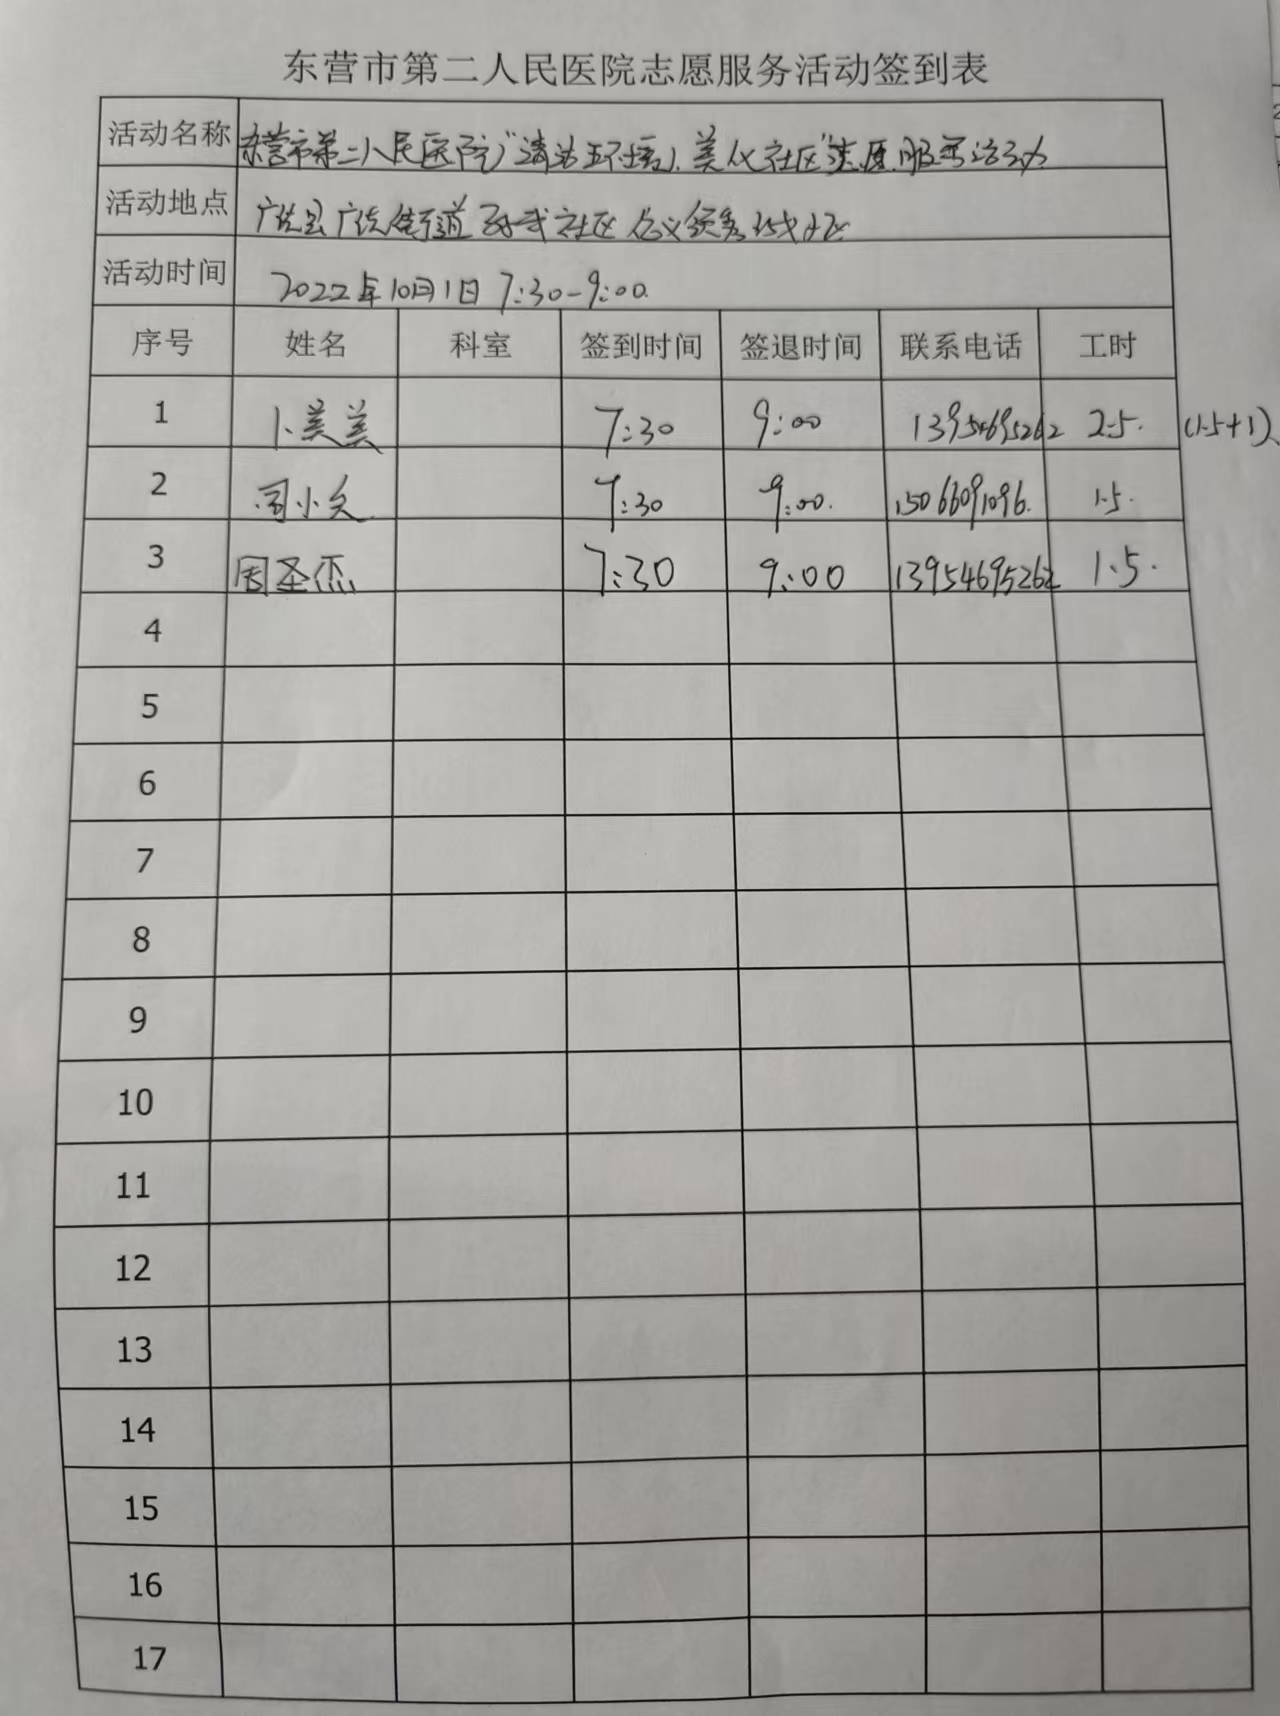 东营市第二人民医院志愿服务活动签到表
活动名称 东营市第二人民医院"清洁环境、美化社区"志愿服务活动
活动地点 广饶县广饶街道 社区
活动时间 2022年10月1日 7:30-9:00
序号 姓名 科室 签到时间 签退时间 联系电话 工时
1 卜美美 7:30 9:00 13954695262 2.5. (1.5+1)、
2 周小文 7:30 9:00. 15066091096. 1.5.
3 周圣杰 7:30 9:00 13954695262 1.5.
4
5
6
7
8
9
10
11
12
13
14
15
16
17